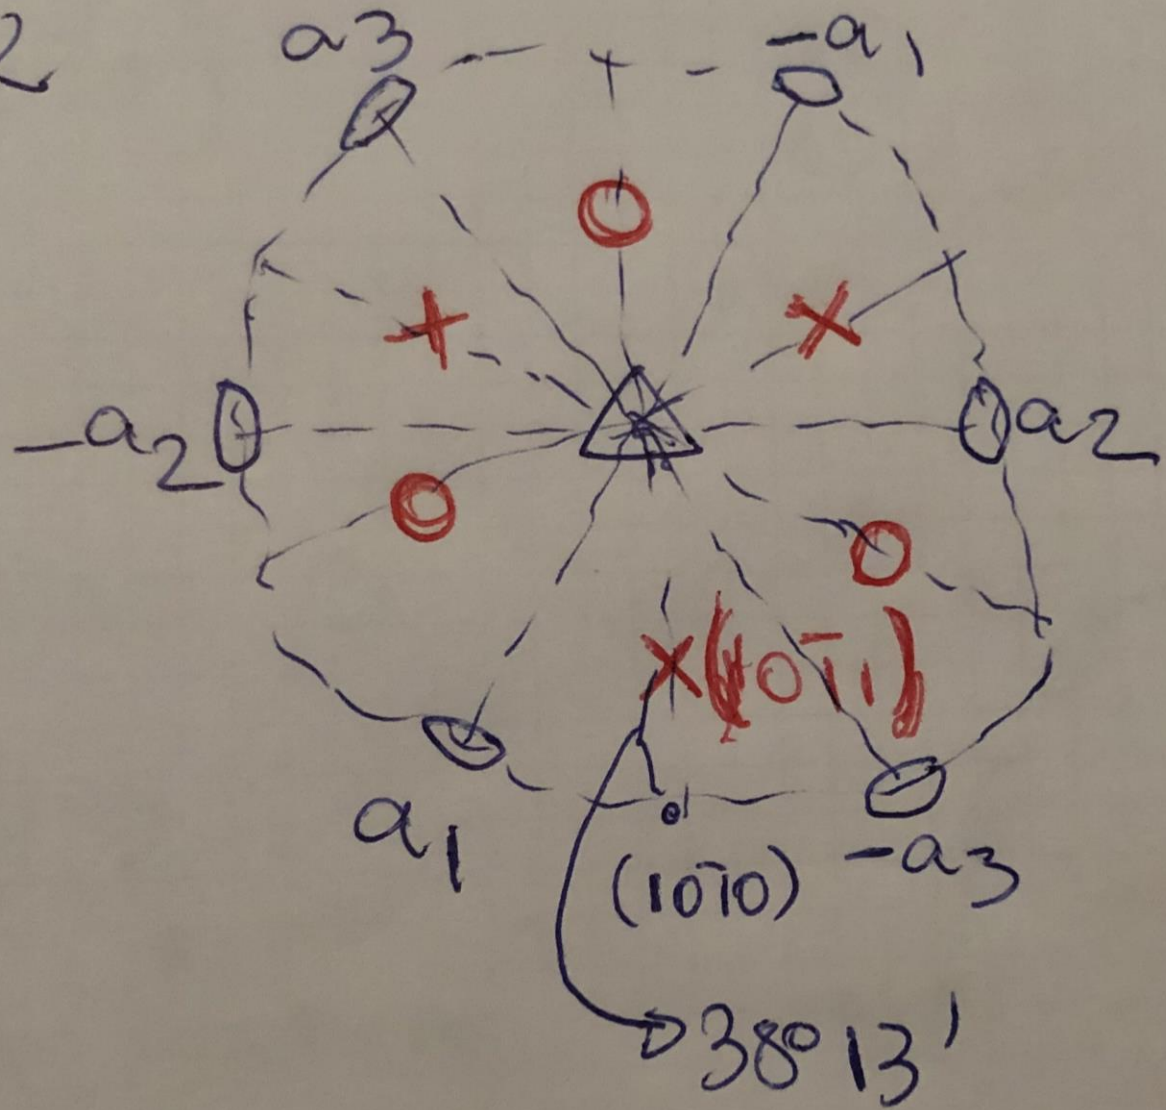 2
a3
-a1
-a2
a2
(10̄11)
a1
(10̄10)
-a3
38° 13'